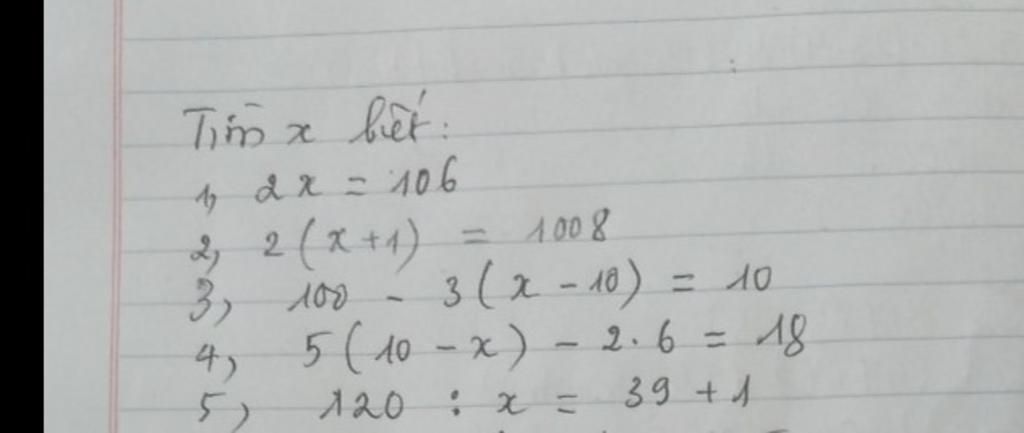 Tìm x biết:
1, 2x = 106
2, 2(x+1) = 1008
3, 100 - 3(x - 10) = 10
4, 5(10 - x) - 2.6 = 18
5, 120 : x = 39 + 1